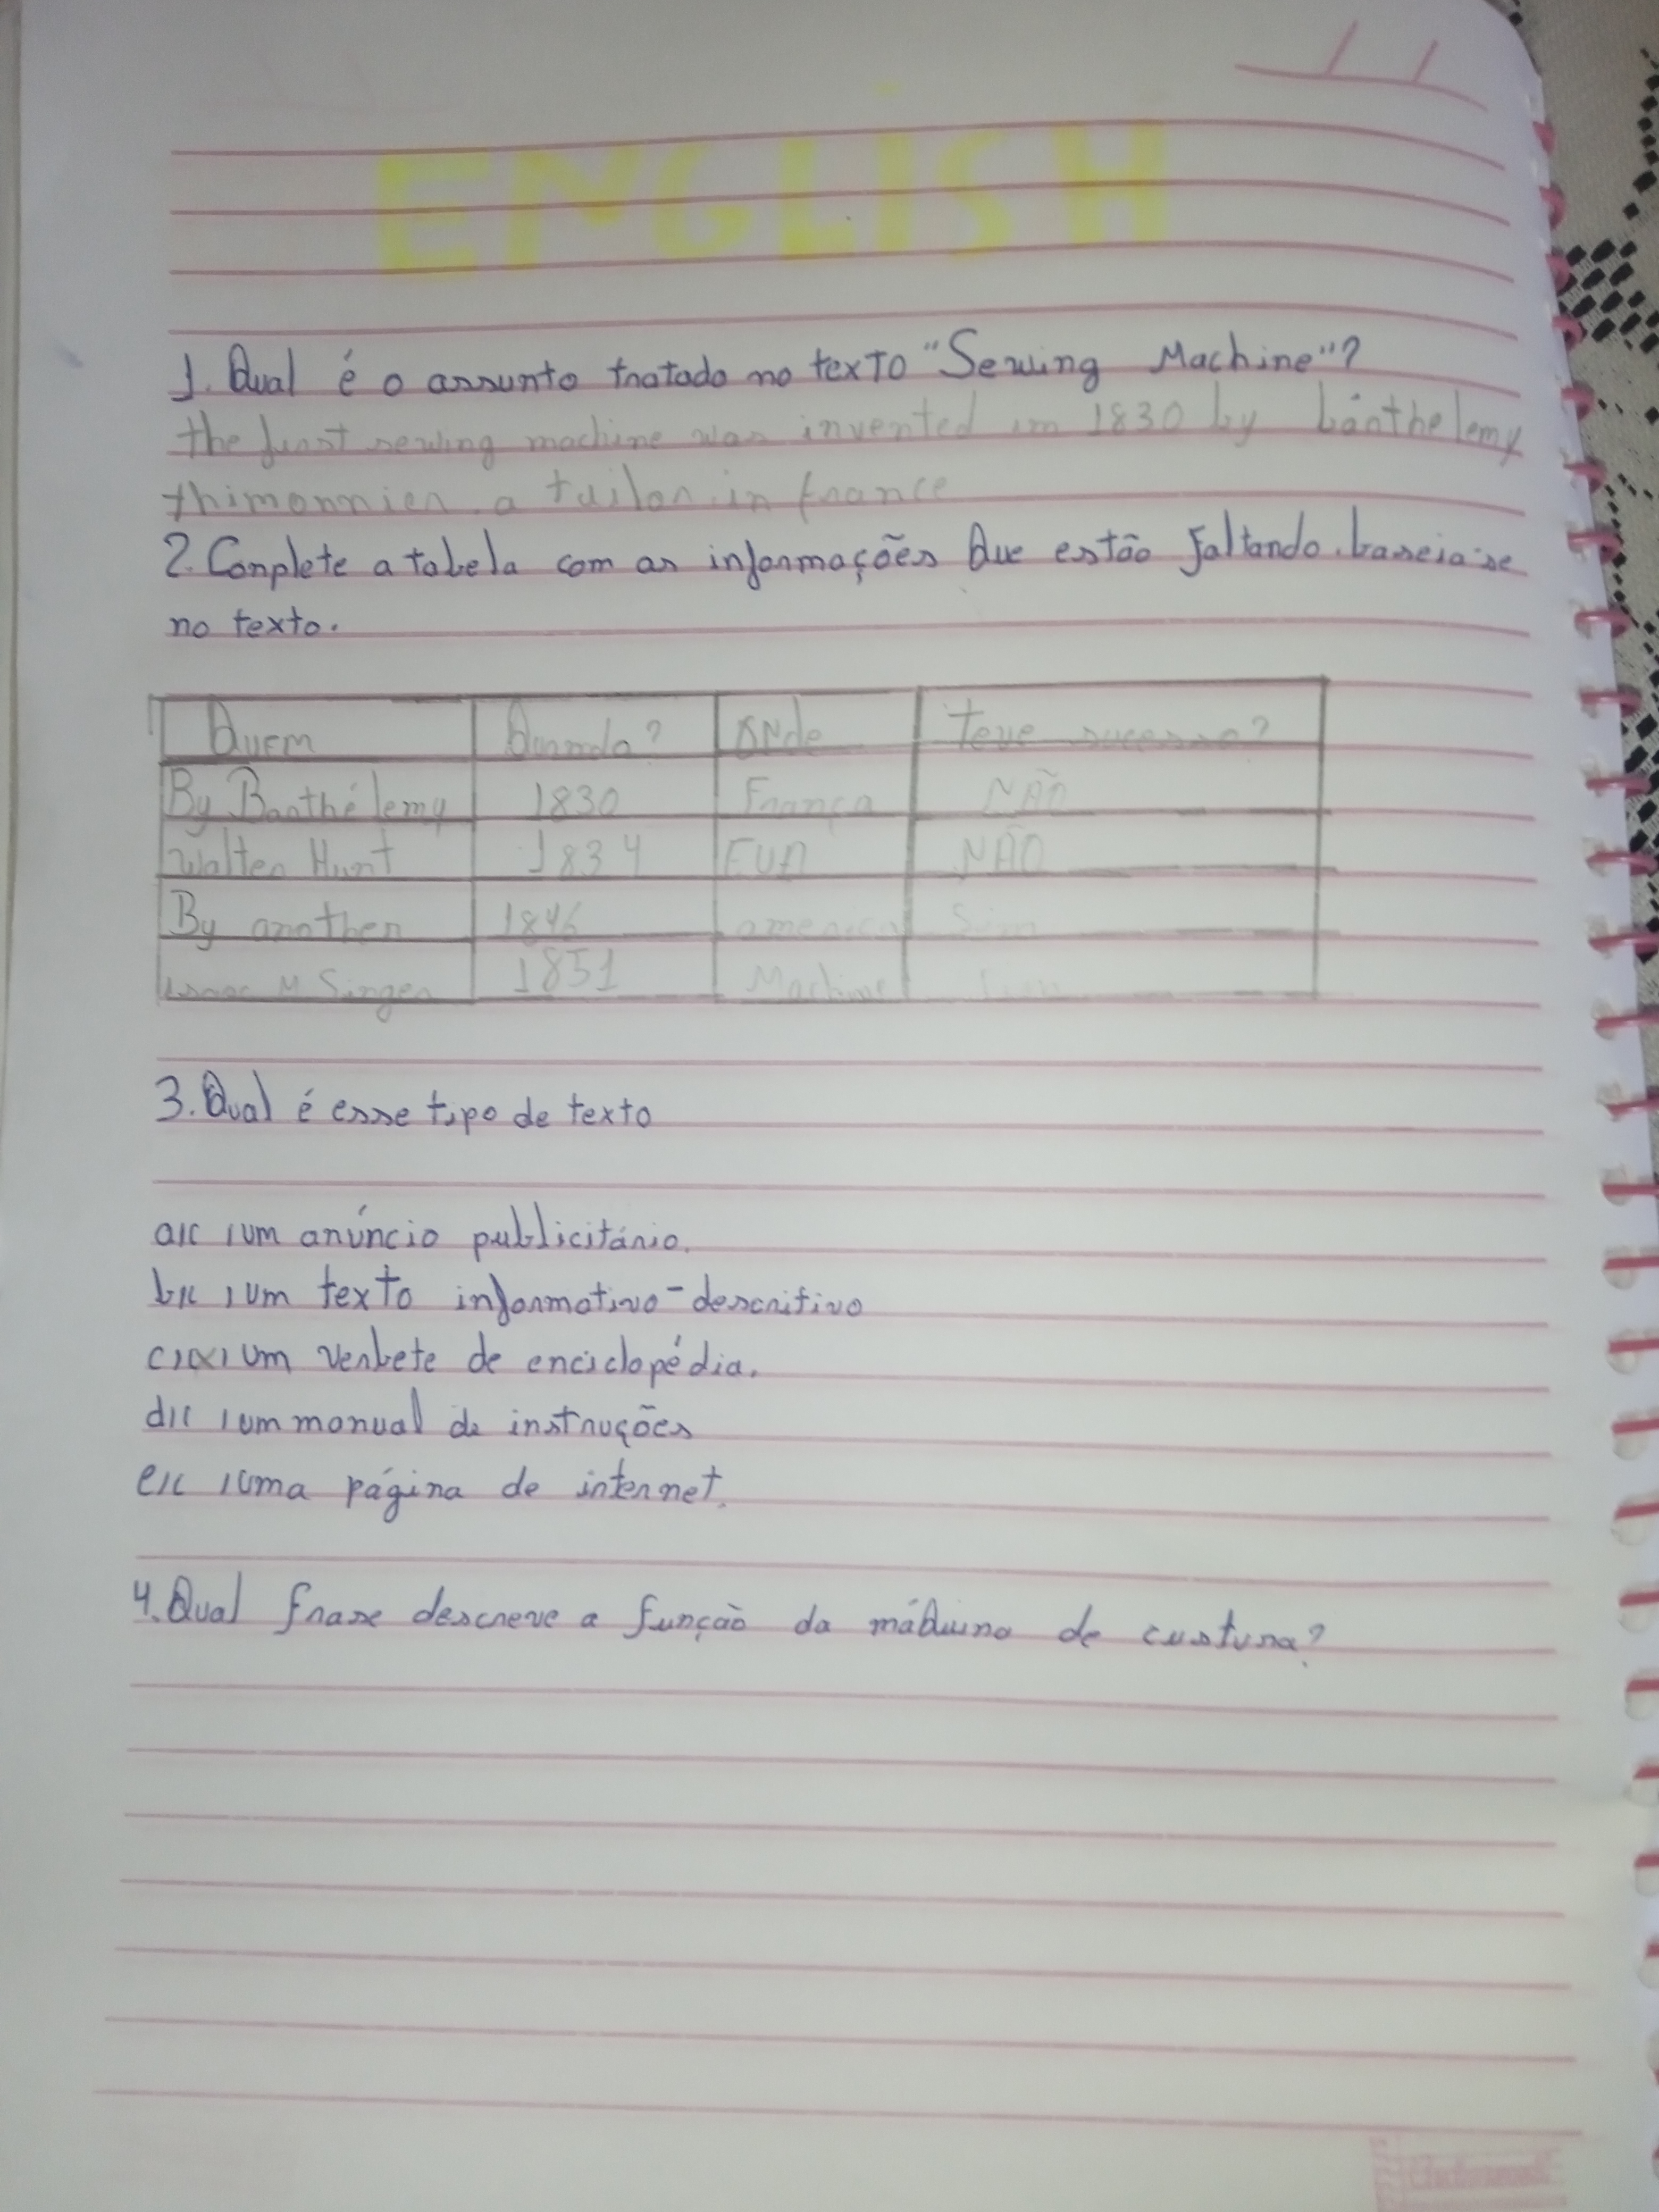 ENGLISH
1. Qual é o assunto tratado no texto "Sewing Machine"?
the first sewing machine was invented in 1830 by bárthelemy
thimonnier, a tailor in france
2. Conplete a tabela com as informações Que estão faltando. baseia-se
no texto.
Quem Quando? ONde Teve sucesso?
By Barthélemy 1830 França NÃO
Walter Hunt 1834 EUA NÃO
By another 1846 american Sim
Isaac M Singer 1851 Machine Sim
3. Qual é esse tipo de texto
a)( )um anúncio publicitário.
b)( )um texto informativo-descritivo
c)(x)um verbete de enciclopédia.
d)( )um manual de instruções
e)( )uma página de internet.
4. Qual frase descreve a função da máquina de custura?